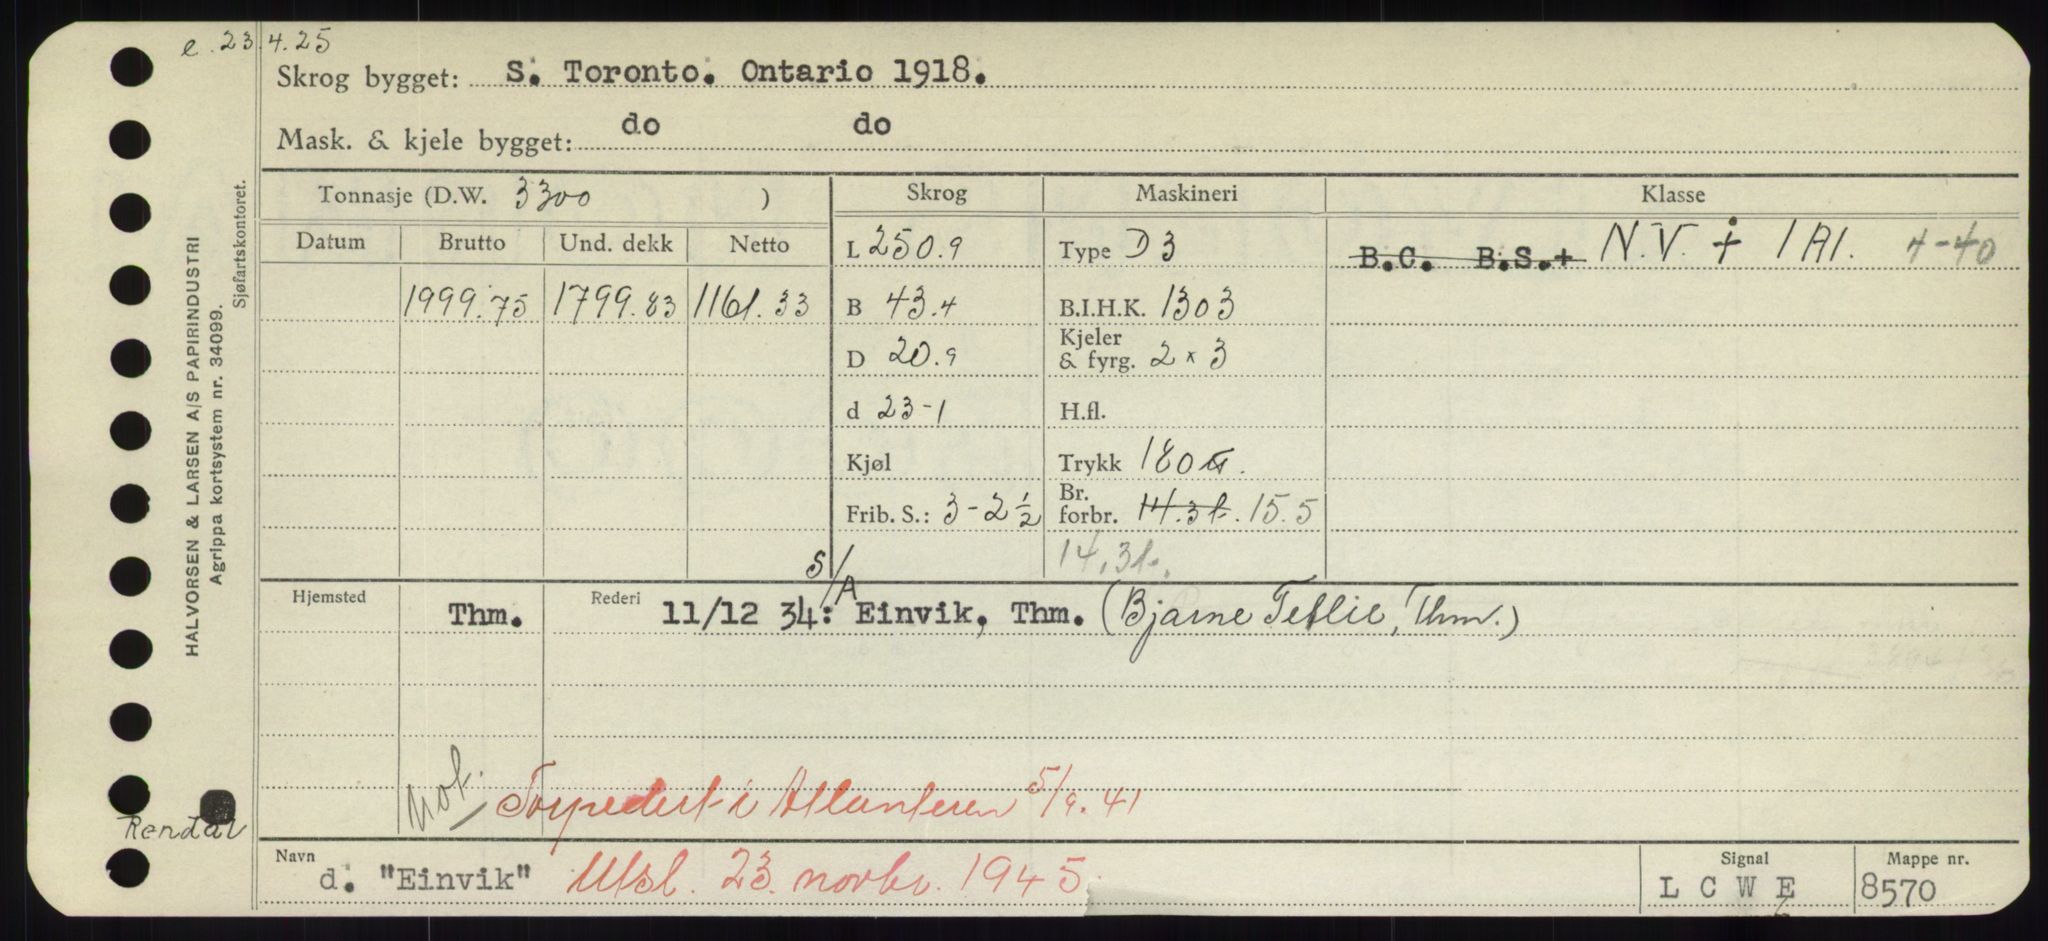 e. 23.4.25
Skrog bygget: S. Toronto. Ontario 1918.
Mask. & kjele bygget: do do
Tonnasje (D.W. 3300 ) Skrog Maskineri Klasse
Datum Brutto Und. dekk Netto L 250.9 Type D 3 B.C. B.S.+ N.V. + 1A1. 4-40
1999.75 1799.83 1161.33 B 43.4 B.I.H.K. 1303
D 20.9 Kjeler & fyrg. 2 x 3
d 23-1 H.fl.
Kjøl Trykk 180
Frib. S.: 3-2 ½ Br. forbr. 14.3 t. 15.5
14,3 t.
Hjemsted Thm. Rederi 11/12 34: S/A Einvik, Thm. (Bjarne Teflie, Thm.)
Not. Torpedert i Atlanteren 5/9.41
Rendal
Navn d. "Einvik" Utsl. 23. novbr. 1945. Signal L C W E Mappe nr. 8570
HALVORSEN & LARSEN A/S PAPIRINDUSTRI
Agrippa kortsystem nr. 34099.
Sjøfartskontoret.